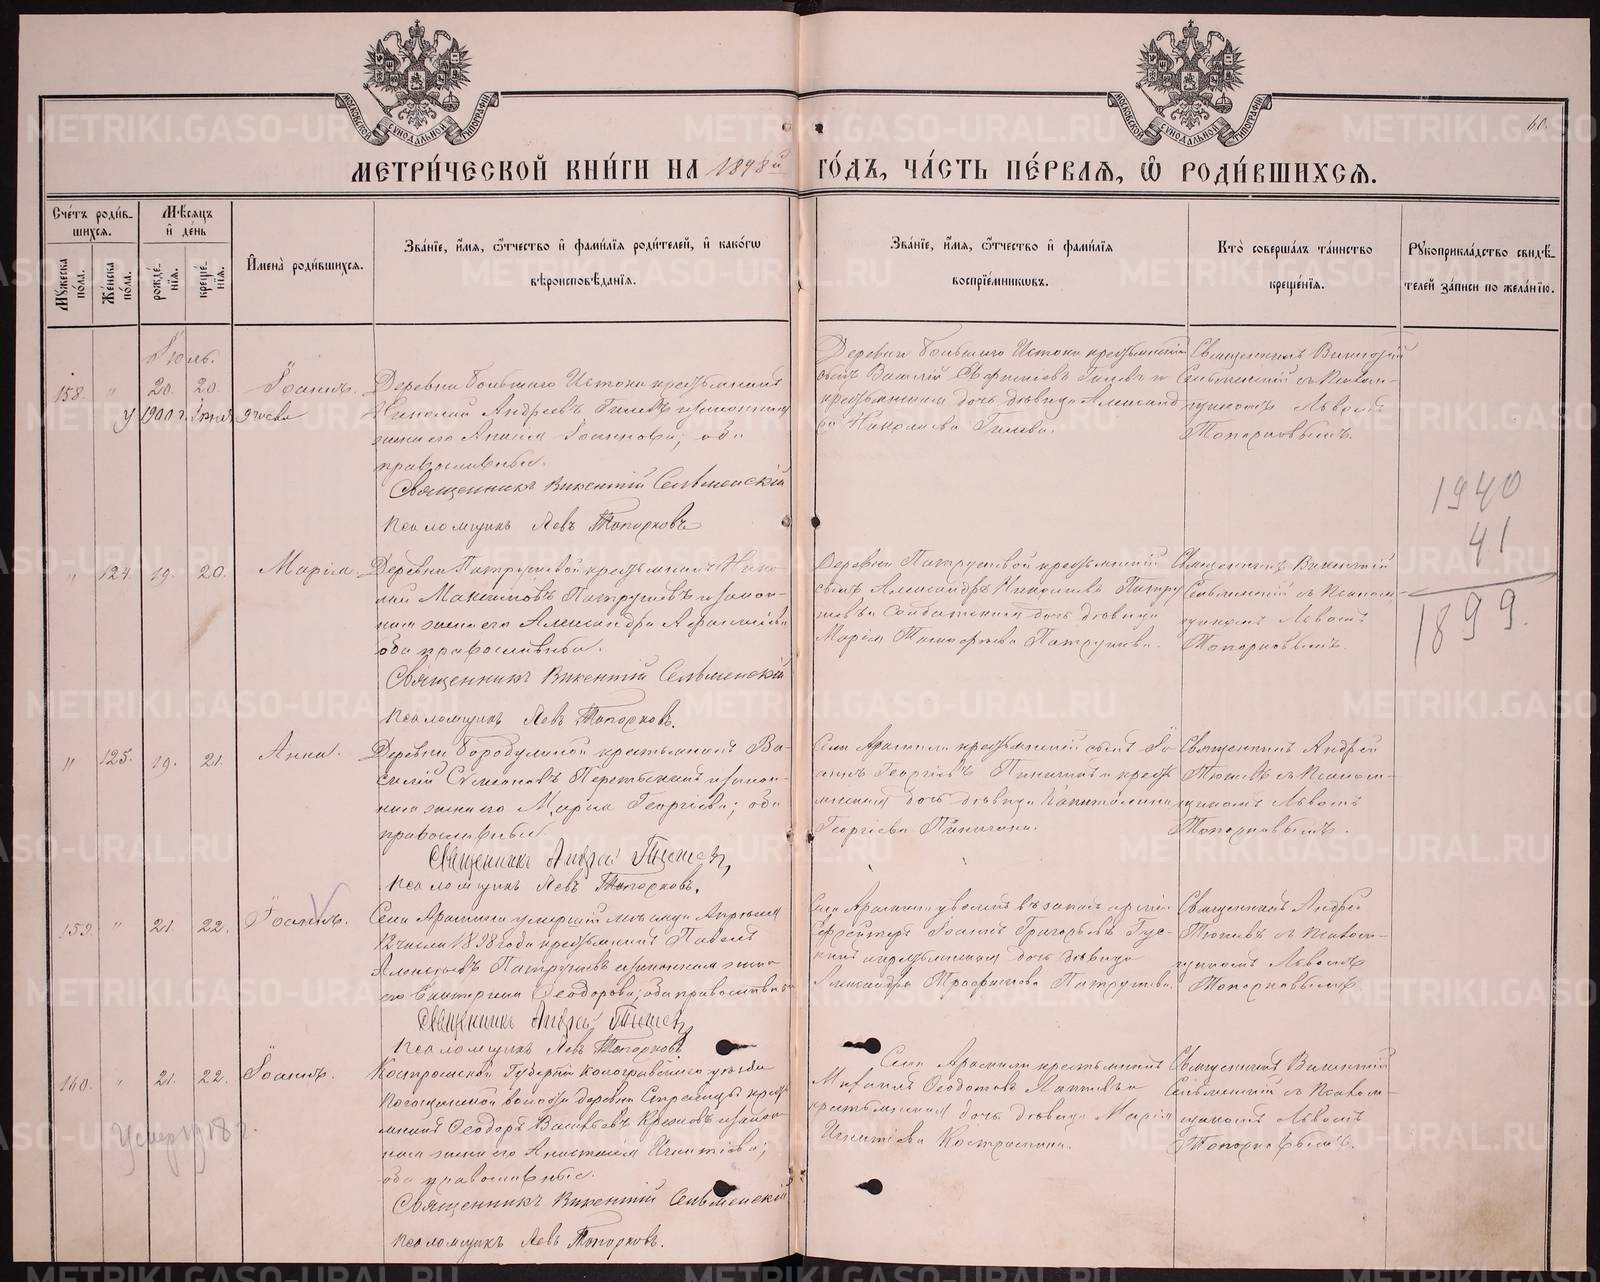 МОСКОВСКОЙ СѴНОДАЛЬНОЙ ТИПОГРАФІИ
МОСКОВСКОЙ СѴНОДАЛЬНОЙ ТИПОГРАФІИ
60.
МЕТРИ́ЧЕСКОЙ КНИ́ГИ НА 1898й ГО́ДЪ, ЧА́СТЬ ПЕ́РВАЯ, Ѡ РОДИ́ВШИХСЯ.
Сче́тъ роди́в-
шихся.
Мѣ́сяцъ
и҆ де́нь
И҆мена̀ роди́вшихся.
Зва́нїе, и҆́мя, ѻ҆́тчество и҆ фами́лїя роди́телей, и҆ како́гѡ
вѣроисповѣ́данїя.
Зва́нїе, и҆́мя, ѻ҆́тчество и҆ фами́лїя
воспрїе́мниковъ.
Кто̀ соверша́лъ та́инство
креще́нїя.
Рꙋкоприкла́дство свидѣ́-
телей за́писи по жела́нїю.
Мꙋ́жеска по́ла.
Же́нска по́ла.
рожде́нїя.
креще́нїя.
Іюль.
158. " 20. 20. Іоаннъ.
У 1900 г. Іюня 9 числа
Деревни Большаго Истока крестьянинъ
Николай Андреевъ Гилевъ и законная
жена его Іоаннова; оба
православные.
Священникъ Викентій Сельменскій
Псаломщикъ Левъ Топорковъ
Деревни Большаго Истока крестьянскій
сынъ Василій Гилевъ и
крестьянская дочь дѣвица Александ
ра Николаева Гилева.
Священникъ Викентій
Сельменскій съ Псалом-
щикомъ Львомъ
Топорковымъ.
1940
41
1899.
" 124. 19. 20. Марія.
Деревни Патрушевой крестьянинъ Нико-
лай Максимовъ Патрушевъ и закон-
ная жена его Александра
оба православные.
Священникъ Викентій Сельменскій
Псаломщикъ Левъ Топорковъ.
Деревни Патрушевой крестьянскій
сынъ Александръ Николаевъ Патру
шевъ и Солдатская дочь дѣвица
Марія Патрушева.
Священникъ Викентій
Сельменскій съ Псалом-
щикомъ Львомъ
Топорковымъ.
" 125. 19. 21. Анна.
Деревни Бородулиной крестьянинъ Ва-
силій Симеоновъ и закон-
ная жена его Марія Георгіева; оба
православные
Священникъ Андрей Тюшевъ
Псаломщикъ Левъ Топорковъ.
Села Арамили крестьянскій сынъ Іо-
аннъ Георгіевъ и кресть
янская дочь дѣвица Капитолина
Георгіева
Священникъ Андрей
Тюшевъ съ Псалом-
щикомъ Львомъ
Топорковымъ.
159. " 21. 22. Іоаннъ.
Села Арамили умершій мѣсяца Апрѣля
12 числа 1898 года крестьянинъ Павелъ
Алексѣевъ Патрушевъ и законная жена
его Екатерина Ѳеодорова; оба православные
Священникъ Андрей Тюшевъ
Псаломщикъ Левъ Топорковъ
Села Арамили уволенный въ запасъ арміи
Ефрейторъ Іоаннъ Григорьевъ Гус-
и крестьянская дочь дѣвица
Александра Трофимова Патрушева.
Священникъ Андрей
Тюшевъ съ Псалом-
щикомъ Львомъ
Топорковымъ.
160. " 21. 22. Іоаннъ.
Умер 1918 г.
Костромской Губерніи Кологривскаго уѣзда
волости деревни кресть
янинъ Ѳеодоръ Васильевъ и закон-
ная жена его Анастасія Игнатіева;
оба православные.
Священникъ Викентій Сельменскій
Псаломщикъ Левъ Топорковъ.
Села Арамили крестьянинъ
Михаилъ Ѳеодотовъ и
крестьянская дочь дѣвица Марія
Игнатіева Костромина.
Священникъ Викентій
Сельменскій съ Псалом-
щикомъ Львомъ
Топорковымъ.
METRIKI.GASO-URAL.RU